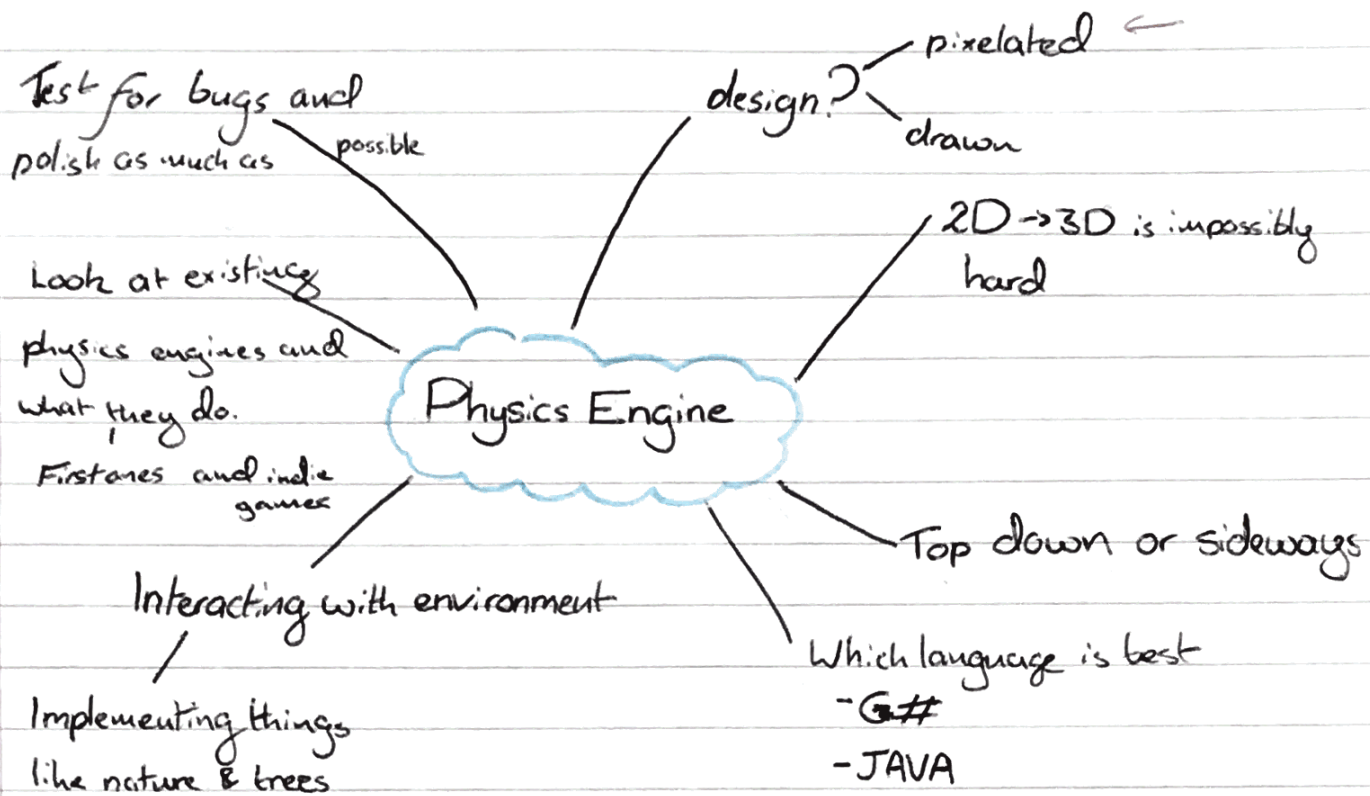 Test for bugs and
polish as much as
possible
Look at existing
physics engines and
what they do.
First ones and indie
games
Interacting with environment
Implementing things
like nature & trees
Physics Engine
design?
pixelated
drawn
2D → 3D is impossibly
hard
Top down or sideways
Which language is best
- C#
- JAVA